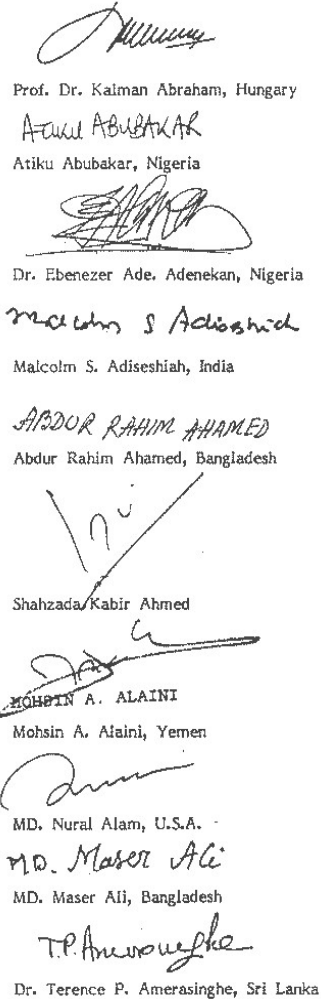 Prof. Dr. Kalman Abraham, Hungary
Atiku ABUBAKAR
Atiku Abubakar, Nigeria
Dr. Ebenezer Ade. Adenekan, Nigeria
Malcolm S Adiseshiah
Malcolm S. Adiseshiah, India
ABDUR RAHIM AHAMED
Abdur Rahim Ahamed, Bangladesh
Shahzada Kabir Ahmed
MOHSIN A. ALAINI
Mohsin A. Alaini, Yemen
MD. Nural Alam, U.S.A.
MD. Maser Ali
MD. Maser Ali, Bangladesh
T.P. Amerasinghe
Dr. Terence P. Amerasinghe, Sri Lanka